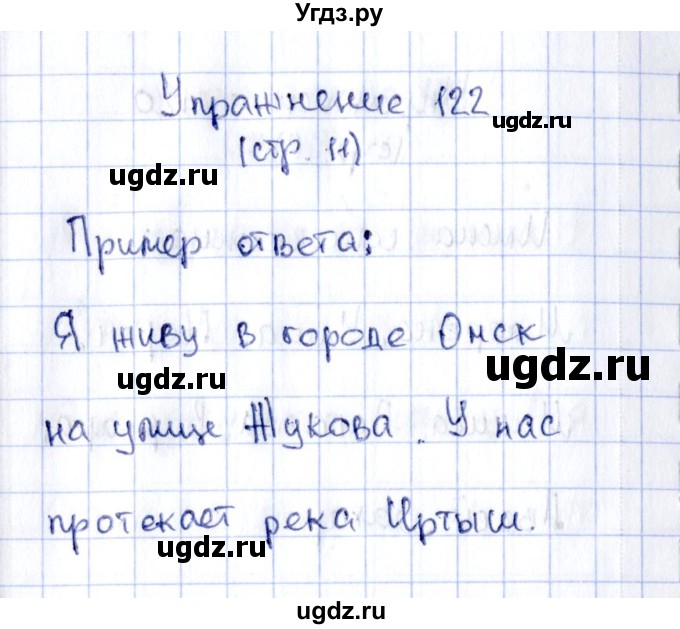 Угдз.ру
Упражнение 122
ugdz.ru
(стр. 11)
ugdz.ru
Пример ответа:
Я живу в городе Омск
ugdz.ru
ugdz.ru
на улице Жукова. У нас
протекает река Иртыш.
ugdz.ru
ugdz.ru